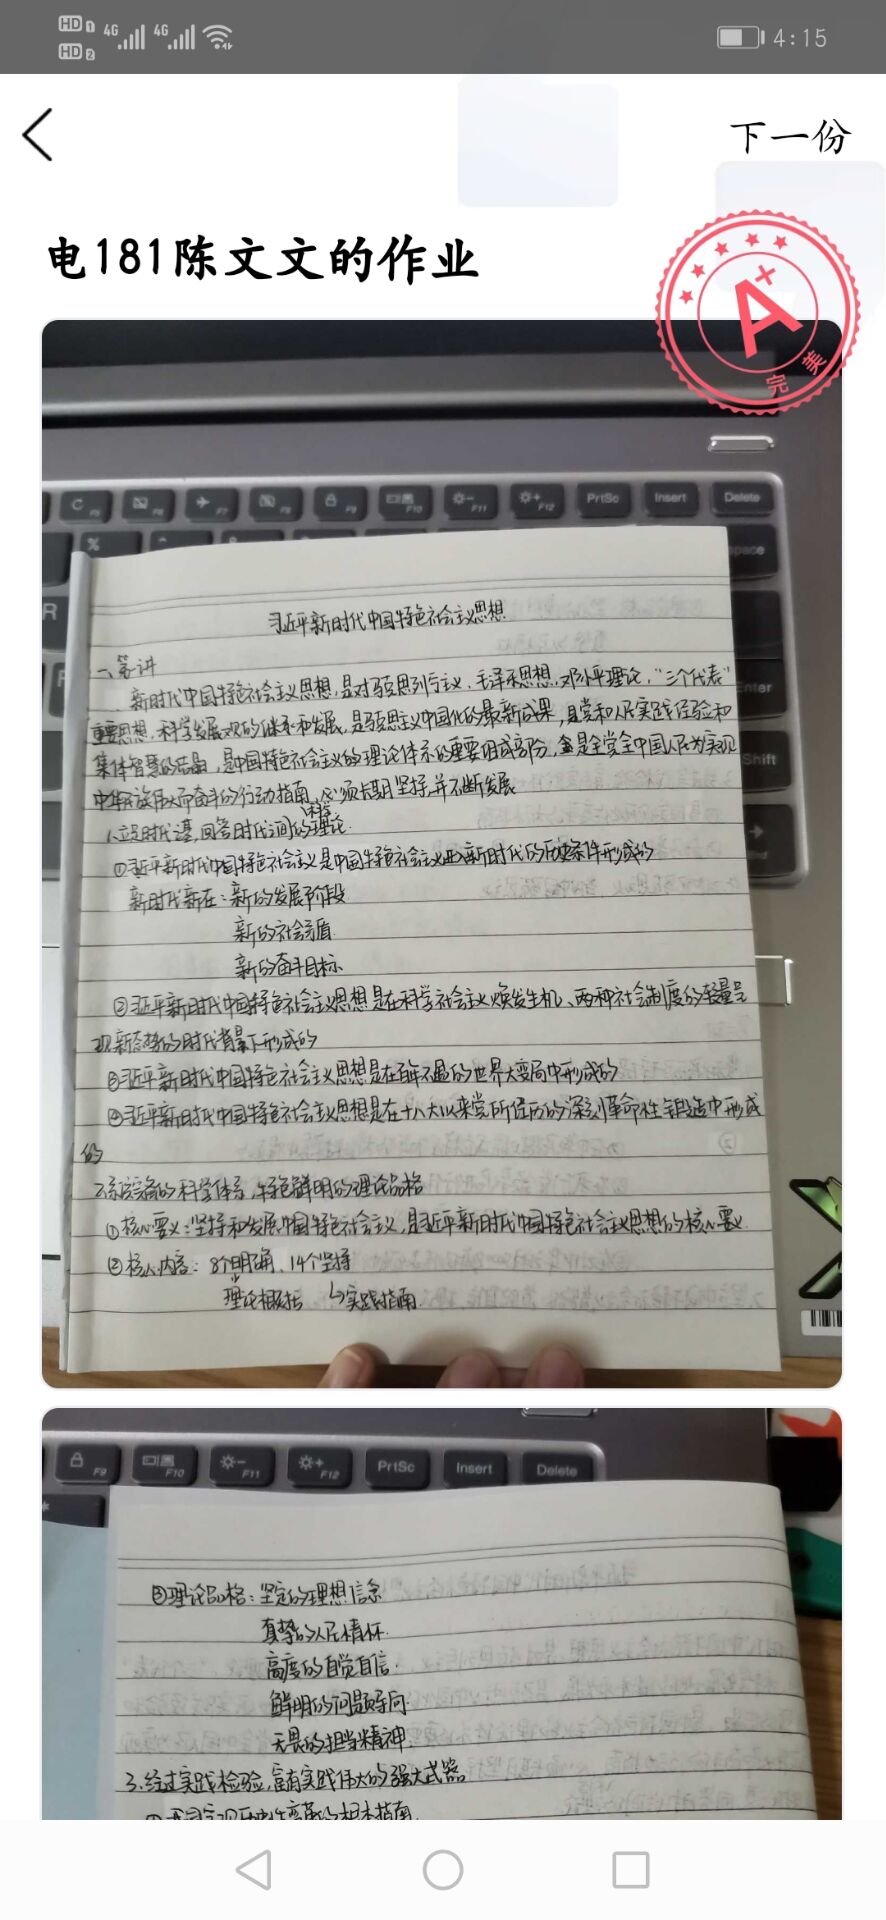 HD 1 4G 4G
HD 2
4:15
下一份
电181陈文文的作业
A+
完美
F5 F6 F7 F8 F9 F10 F11 F12 PrtSc Insert Delete
%
R
Shift
习近平新时代中国特色社会主义思想
一、第一讲
新时代中国特色社会主义思想,是对马克思列宁主义、毛泽东思想、邓小平理论、“三个代表”
重要思想、科学发展观的继承和发展,是马克思主义中国化的最新成果,是党和人民实践经验和
集体智慧的结晶,是中国特色社会主义的理论体系的重要组成部分,是全党全中国人民为实现
中华民族伟大而奋斗的行动指南,必须长期坚持,并不断发展
1.立足时代之基,回答时代之问的科学理论.
①习近平新时代中国特色社会主义是中国特色社会主义进入新时代的历史条件形成的
新时代新在:新的发展阶段
新的社会矛盾
新的奋斗目标
②习近平新时代中国特色社会主义思想是在科学社会主义焕发生机、两种社会制度的较量呈
现新态势的时代背景下形成的
③习近平新时代中国特色社会主义思想是在百年不遇的世界大变局中形成的
④习近平新时代中国特色社会主义思想是在十八大以来党所经历的深刻革命性锻造中形成
的
2.系统完备的科学体系,特色鲜明的理论品格
①核心要义:坚持和发展中国特色社会主义,是习近平新时代中国特色社会主义思想的核心要义.
②核心内容:8个明确、14个坚持
理论概括 ↳实践指南
F9 F10 F11 F12 PrtSc Insert Delete
③理论品格:坚定的理想信念
真挚的人民情怀.
高度的自觉自信.
鲜明的问题导向.
无畏的担当精神.
3.经过实践检验,富有实践伟大的强大武器